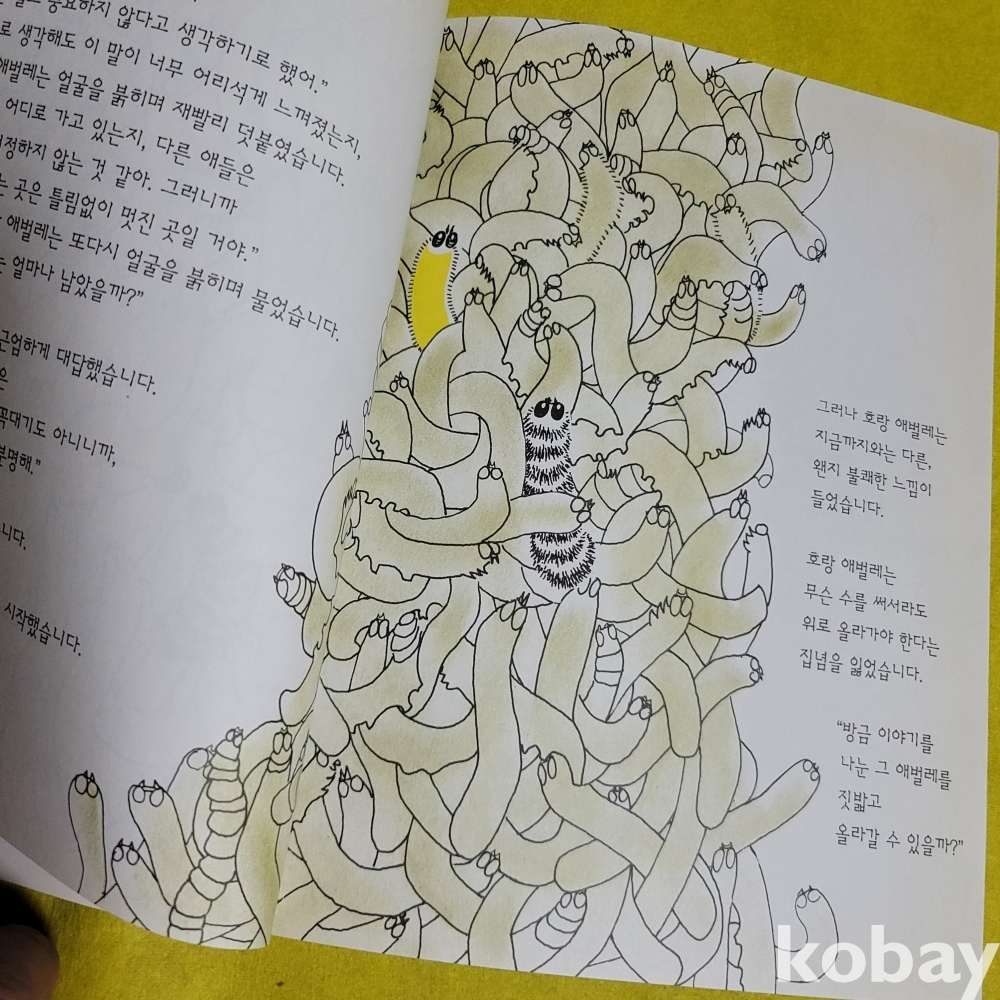 중요하지 않다고 생각하기로 했어.”
생각해도 이 말이 너무 어리석게 느껴졌는지,
애벌레는 얼굴을 붉히며 재빨리 덧붙였습니다.
어디로 가고 있는지, 다른 애들은
걱정하지 않는 것 같아. 그러니까
곳은 틀림없이 멋진 곳일 거야.”
애벌레는 또다시 얼굴을 붉히며 물었습니다.
얼마나 남았을까?”
근엄하게 대답했습니다.
꼭대기도 아니니까,
분명해.”
시작했습니다.
그러나 호랑 애벌레는
지금까지와는 다른,
왠지 불쾌한 느낌이
들었습니다.
호랑 애벌레는
무슨 수를 써서라도
위로 올라가야 한다는
집념을 잃었습니다.
“방금 이야기를
나눈 그 애벌레를
짓밟고
올라갈 수 있을까?”
kobay